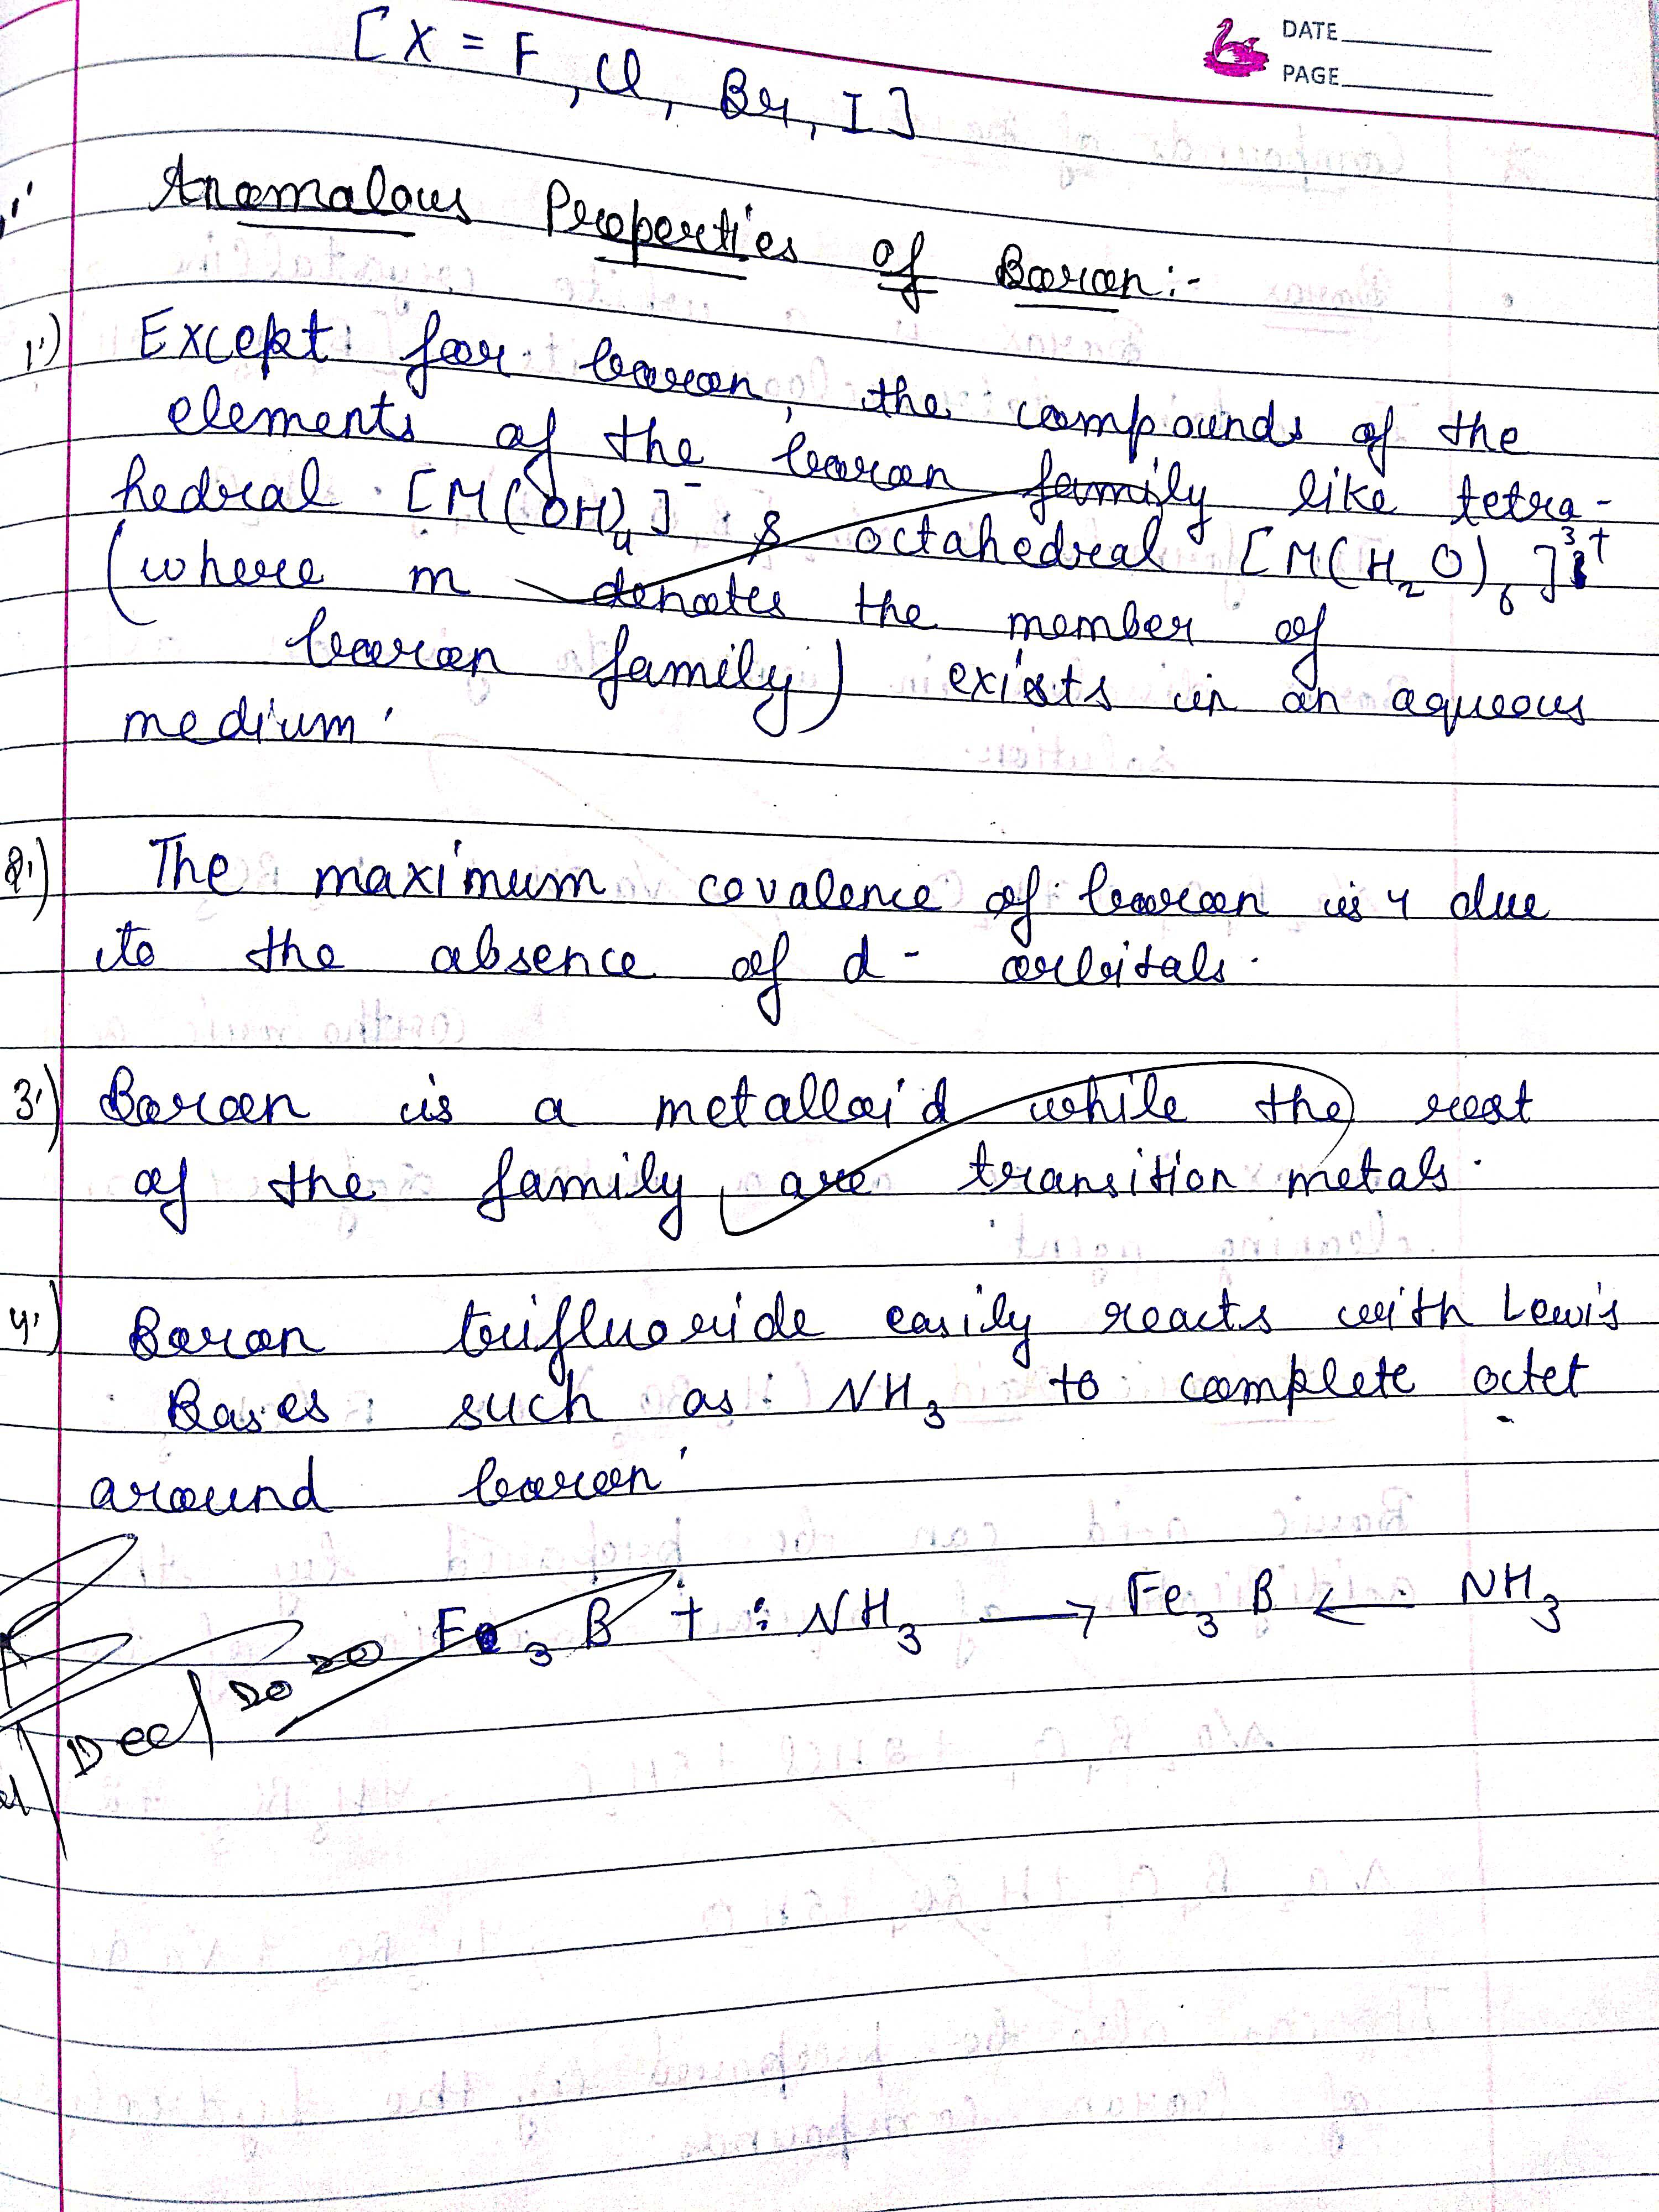 DATE
PAGE
[X = F, Cl, Br, I]
Anomalous Properties of Boron:-
1.) Except for boron, the compounds of the
elements of the boron family like tetra-
hedral [M(OH)4]- & octahedral [M(H2O)6]3+
(where m denotes the member of
boron family) exists in an aqueous
medium.
2.) The maximum covalence of boron is 4 due
to the absence of d- orbitals.
3.) Boron is a metalloid while the rest
of the family are transition metals.
4.) Boron trifluoride easily reacts with Lewis
Bases such as : NH3 to complete octet
around boron.
Fe3 B + : NH3 → Fe3 B ← NH3
Dec/2020